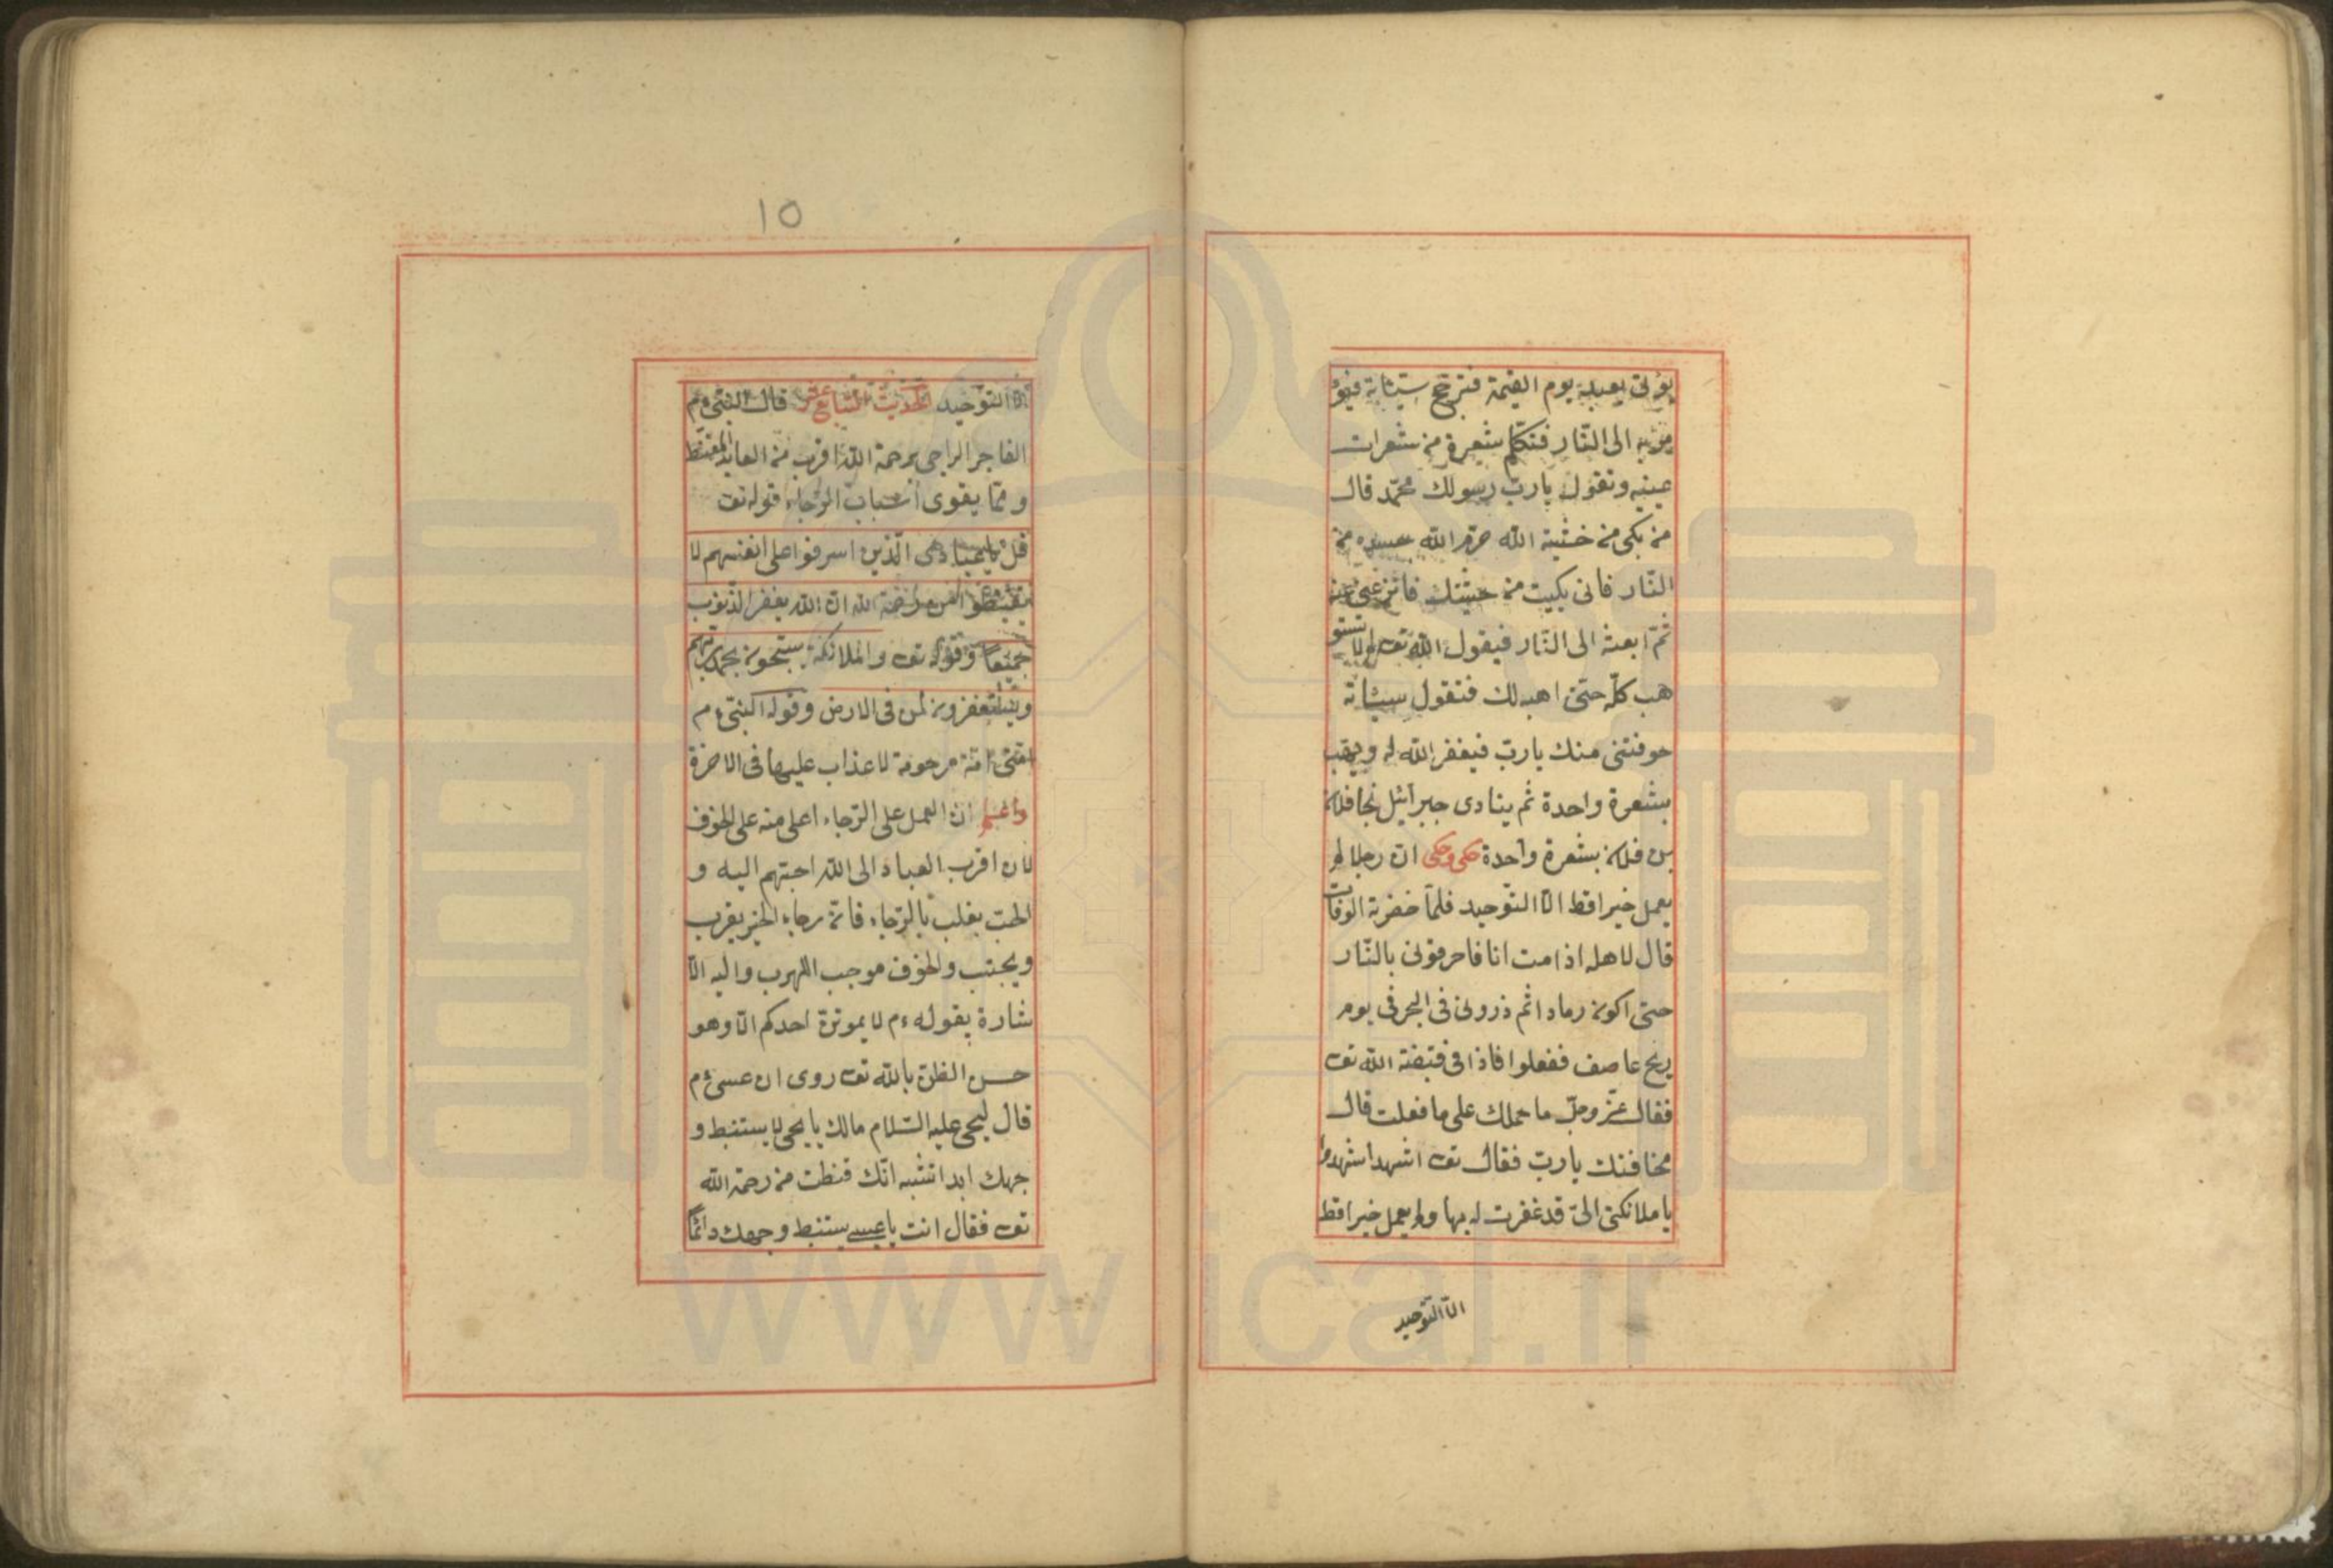 يؤتى بعبد يوم القيمة فترجح سيئاته فيؤ
مر به الى النّار فتكلم شعرة من شعرات
عينيه وتقول يا ربّ رسولك محمّد قال
من بكى من خشية الله حرّم الله جسده من
النّار فانى بكيت من خشيتك
ثمّ ابعثه الى النّار فيقول الله تع
هب كلّه حتى اهبه لك فتقول سيئاته
خوفتنى منك يا ربّ فيغفر الله له
بشعرة واحدة ثم ينادى جبرائيل نجا فلان
بن فلان بشعرة واحدة حكى وحكى ان رجلا لم
يعمل خيرا قط الّا التّوحيد فلمّا حضرته الوفات
قال لاهله اذا مت انا فاحرقونى بالنّار
حتى اكون رمادا ثم ذرونى فى البحر فى يوم
ريح عاصف ففعلوا فاذا فى قبضة الله تع
فقال عزّ وجلّ ما حملك على ما فعلت قال
مخافتك يا ربّ فقال تع اشهد اشهدوا
يا ملائكتى انى قد غفرت له بها ولم يعمل خيرا قط
الّا التّوحيد
١٥
الّا التّوحيد الحديث السّابع عشر قال النبى ءم
الفاجر الراجى برحمة الله اقرب من العابد المقنط
و ممّا يقوى اسباب الرّجاء قوله تع
قل يا عبادى الّذين اسرفوا على انفسهم لا
تقنطوا من رحمة الله ان الله يغفر الذنوب
جميعا وقوله تع والملائكة يسبحون بحمد ربّهم
ويستغفرون لمن فى الارض وقوله النبىّ ءم
امّتى امّة مرحومة لا عذاب عليها فى الاخرة
واعلم ان العمل على الرّجاء اعلى منه على الخوف
لان اقرب العباد الى الله احبّهم اليه و
الحبّ يغلب بالرّجاء فانّ رجاء الخير يقرب
ويحبّب والخوف موجب الهرب واليه الا
شارة بقوله ءم لا يموتنّ احدكم الّا وهو
حسن الظن بالله تع روى ان عيسى ءم
قال ليحيى عليه السّلام مالك يا يحيى لا يستنبط و
جهك ابدا تشبه انّك قنطت من رحمة الله
تع فقال انت يا عيسى يستنبط وجهك دائماً
www.ical.ir